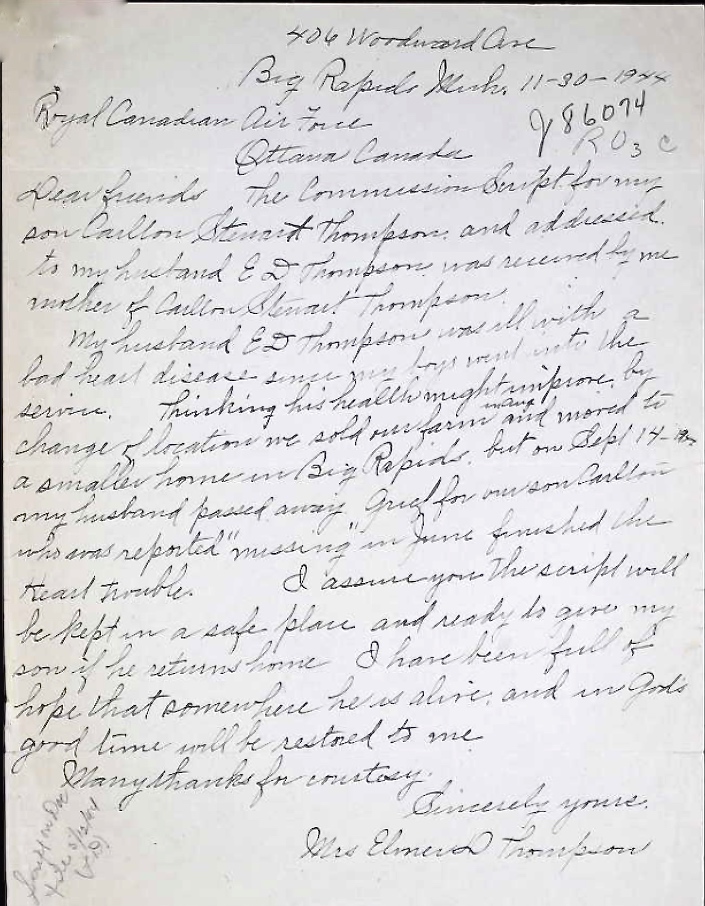 406 Woodward Ave
Big Rapids Mich. 11-30-1944
Royal Canadian Air Force
J86074
Ottawa Canada
Dear friends The Commission Script for my
son Carlton Stewart Thompson, and addressed
to my husband E D Thompson, was received by me
mother of Carlton Stewart Thompson.
My husband E D Thompson was ill with a
bad heart disease since my boys went into the
service. Thinking his health might improve, by
change of location we sold our farm and moved to
a smaller home in Big Rapids, but on Sept 14-
my husband passed away. Grief for our son Carlton
who was reported "missing" in June finished the
heart trouble. I assure you the script will
be kept in a safe place and ready to give my
son if he returns home I have been full of
hope that somewhere he is alive, and in God's
good time will be restored to me.
Many thanks for courtesy.
Sincerely yours.
Mrs Elmer D Thompson